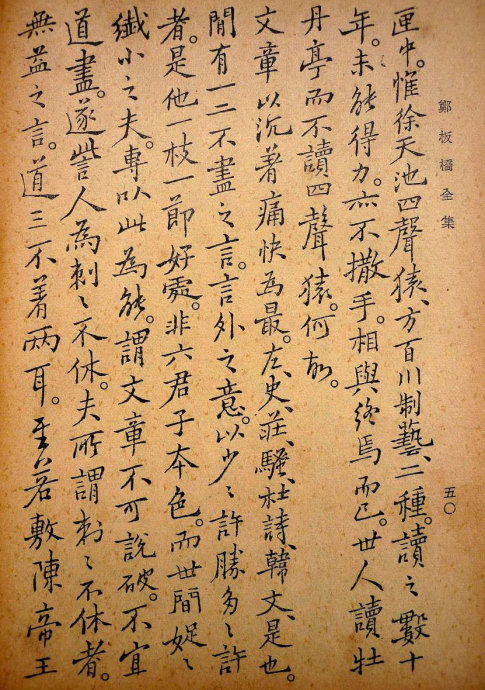 鄭板橋全集
五〇
匣中。惟徐天池四聲猿、方百川制藝、二種。讀之數十
年。未能得力。亦不撒手。相與終焉而已。世人讀牡
丹亭而不讀四聲猿。何故。
文章以沉著痛快為最。左、史、莊、騷、杜詩、韓文、是也。
間有一二不盡之言。言外之意。以少〻許勝多〻許
者。是他一枝一節好處。非六君子本色。而世間娖〻
纖小之夫。專以此為能。謂文章不可說破。不宜
道盡。遂訾人為刺〻不休。夫所謂刺〻不休者。
無益之言。道三不着兩耳。至若敷陳帝王